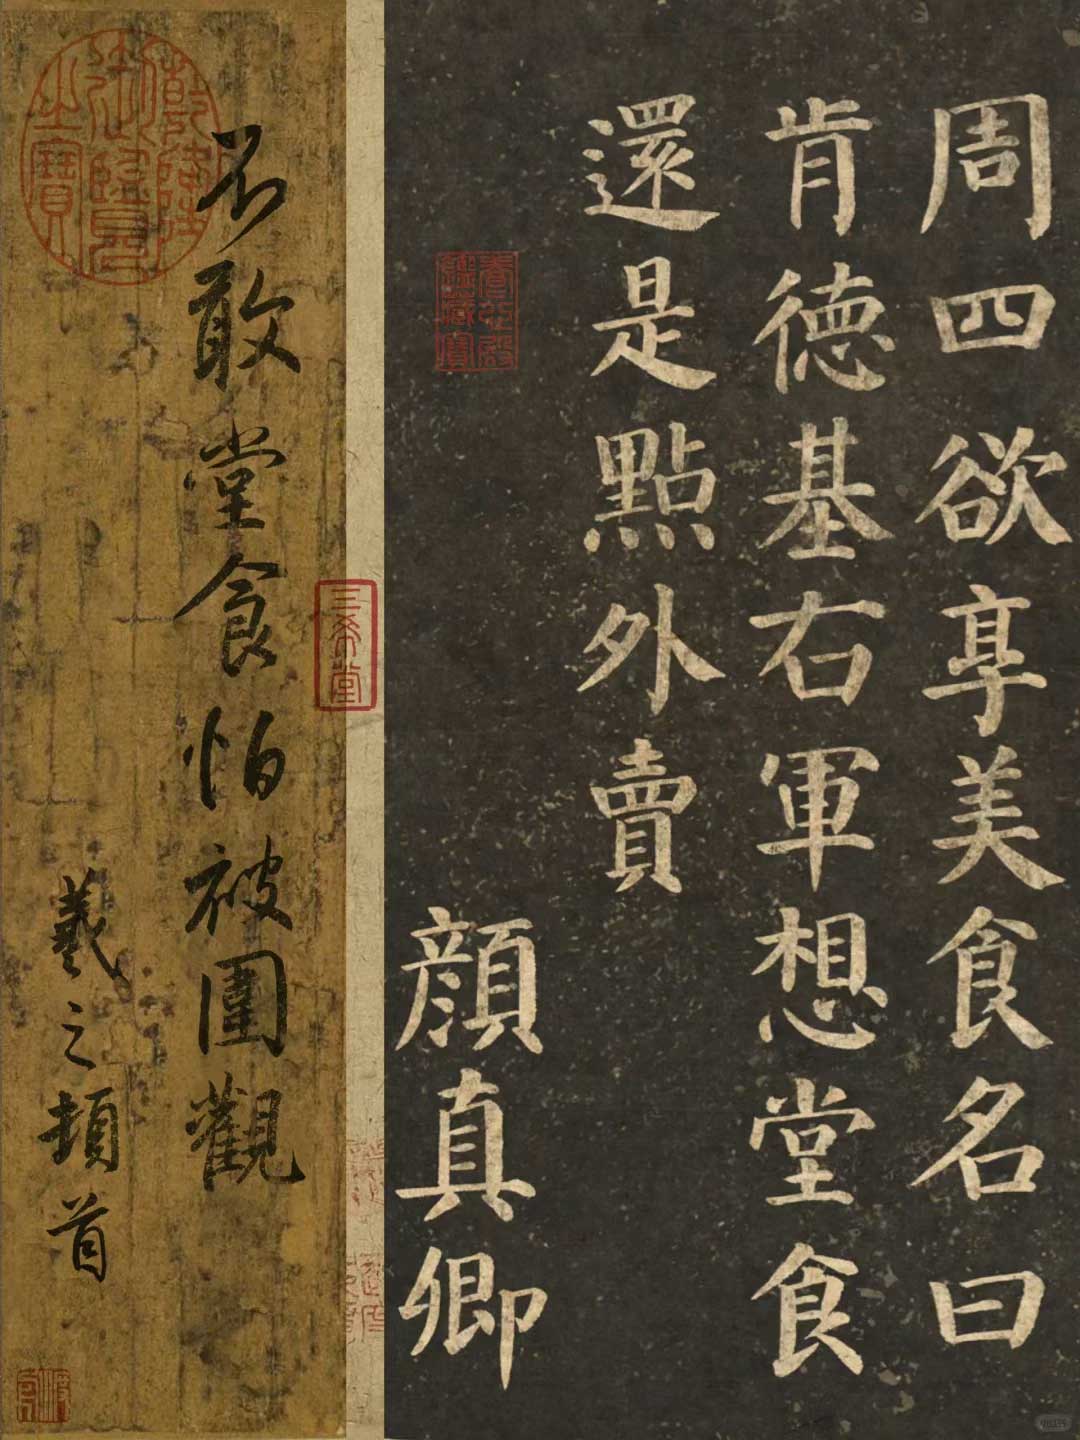 周四欲享美食名曰
肯德基右軍想堂食
還是點外賣
顔真卿
不敢堂食怕被圍觀
羲之頓首
三希堂